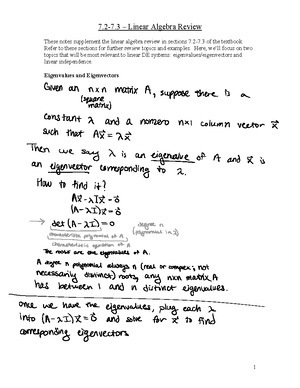 7.2-7.3 – Linear Algebra Review
These notes supplement the linear algebra review in sections 7.2-7.3 of the textbook.
Refer to these sections for further review topics and examples. Here, we'll focus on two
topics that will be most relevant to linear DE systems: eigenvalues/eigenvectors and
linear independence.
Eigenvalues and Eigenvectors
Given an nxn matrix A, suppose there is a
(square
matrix)
constant λ and a nonzero n×1 column vector x⃗
such that Ax⃗ = λx⃗
Then we say λ is an eigenvalue of A and x⃗ is
an eigenvector corresponding to λ.
How to find it?
Ax⃗ - λIx⃗ = 0⃗
(A - λI)x⃗ = 0⃗
→ det (A - λI) = 0
degree n
(polynomial in λ)
characteristic polynomial of A
characteristic equation of A
The roots are the eigenvalues of A.
A degree n polynomial always n (real or complex, not
necessarily distinct) roots, any nxn matrix A
has between 1 and n distinct eigenvalues.
Once we have the eigenvalues, plug each λ
into (A - λI)x⃗ = 0⃗ and solve for x⃗ to find
corresponding eigenvectors
1